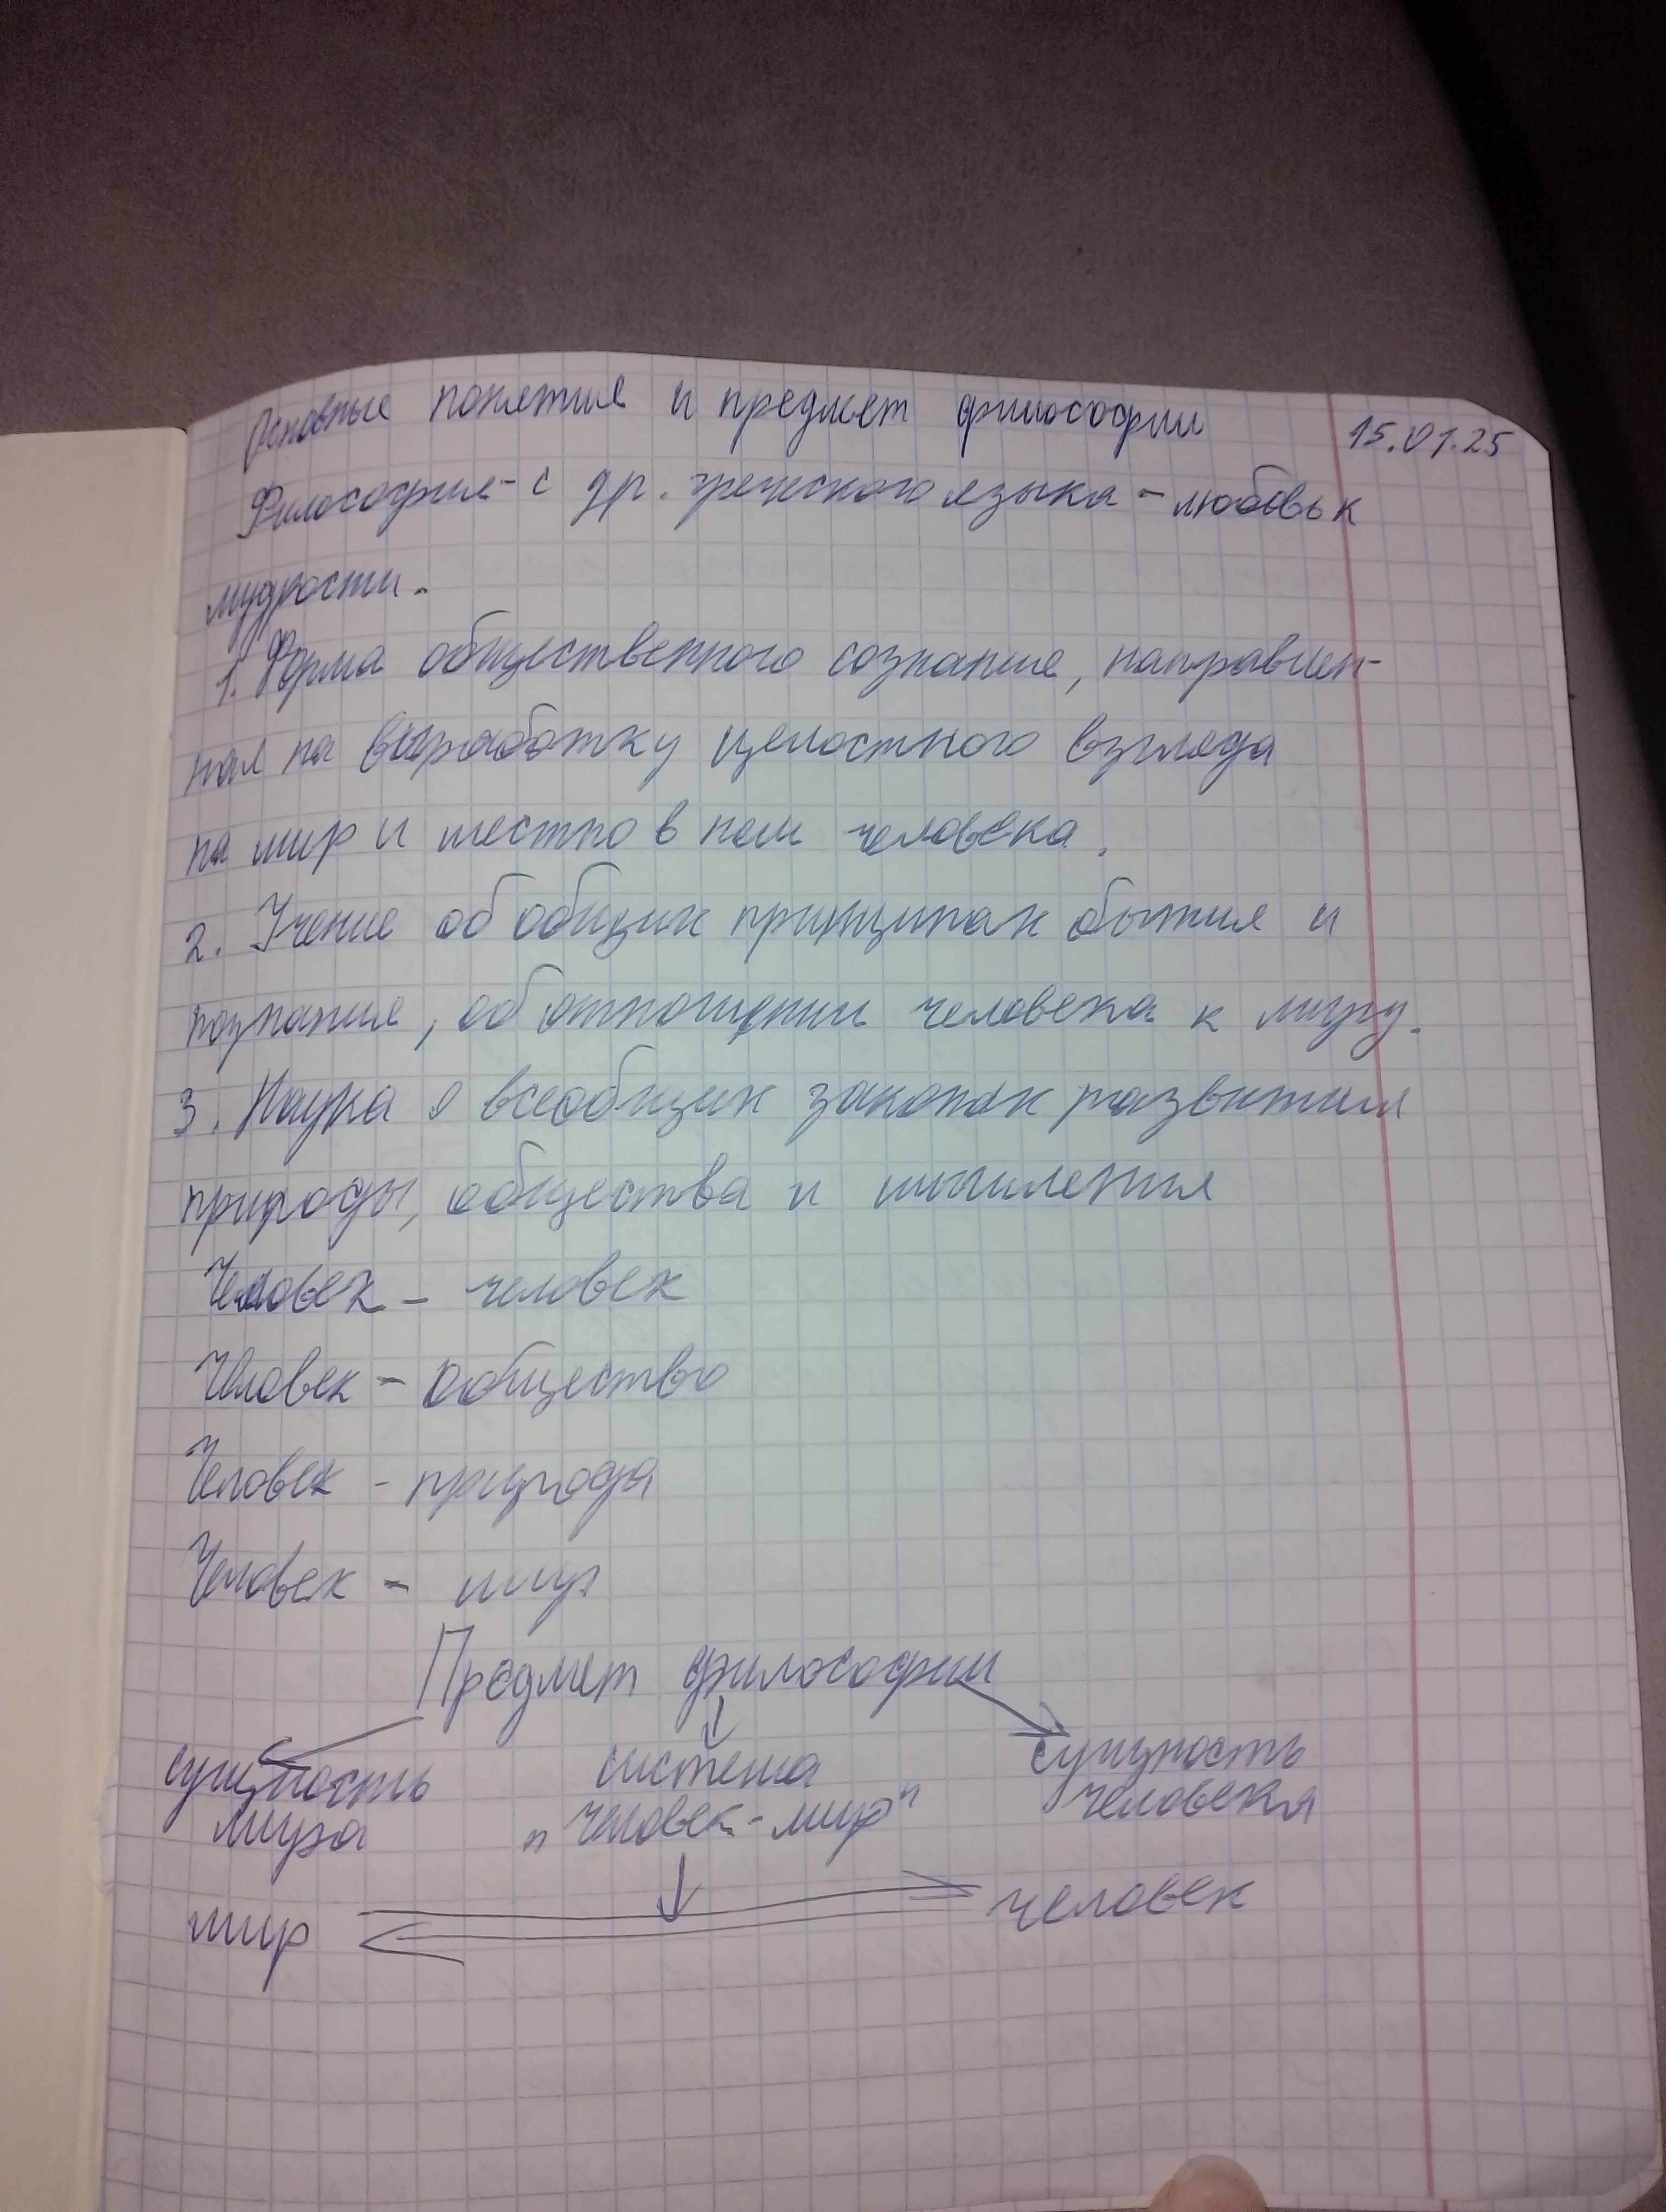 Основные понятия и предмет философии 15.01.25
Философия - с др. греческого языка - любовь к
мудрости.
1. Форма общественного сознания, направлен-
ная на выработку целостного взгляда
на мир и место в нем человека.
2. Учение об общих принципах бытия и
познания, об отношении человека к миру.
3. Наука о всеобщих законах развития
природы, общества и мышления
Человек - человек
Человек - общество
Человек - природа
Человек - мир
Предмет философии
сущность система сущность
мира "человек-мир" человека
мир человек